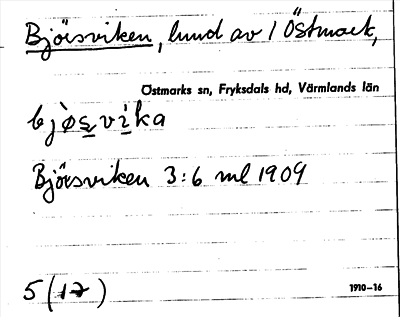 Björsviken, lund av 1 Östmark,
Östmarks sn, Fryksdals hd, Värmlands län
bjøs̲vi̲ka
Björsviken 3:6 ml 1909
5 (17)
1910–16